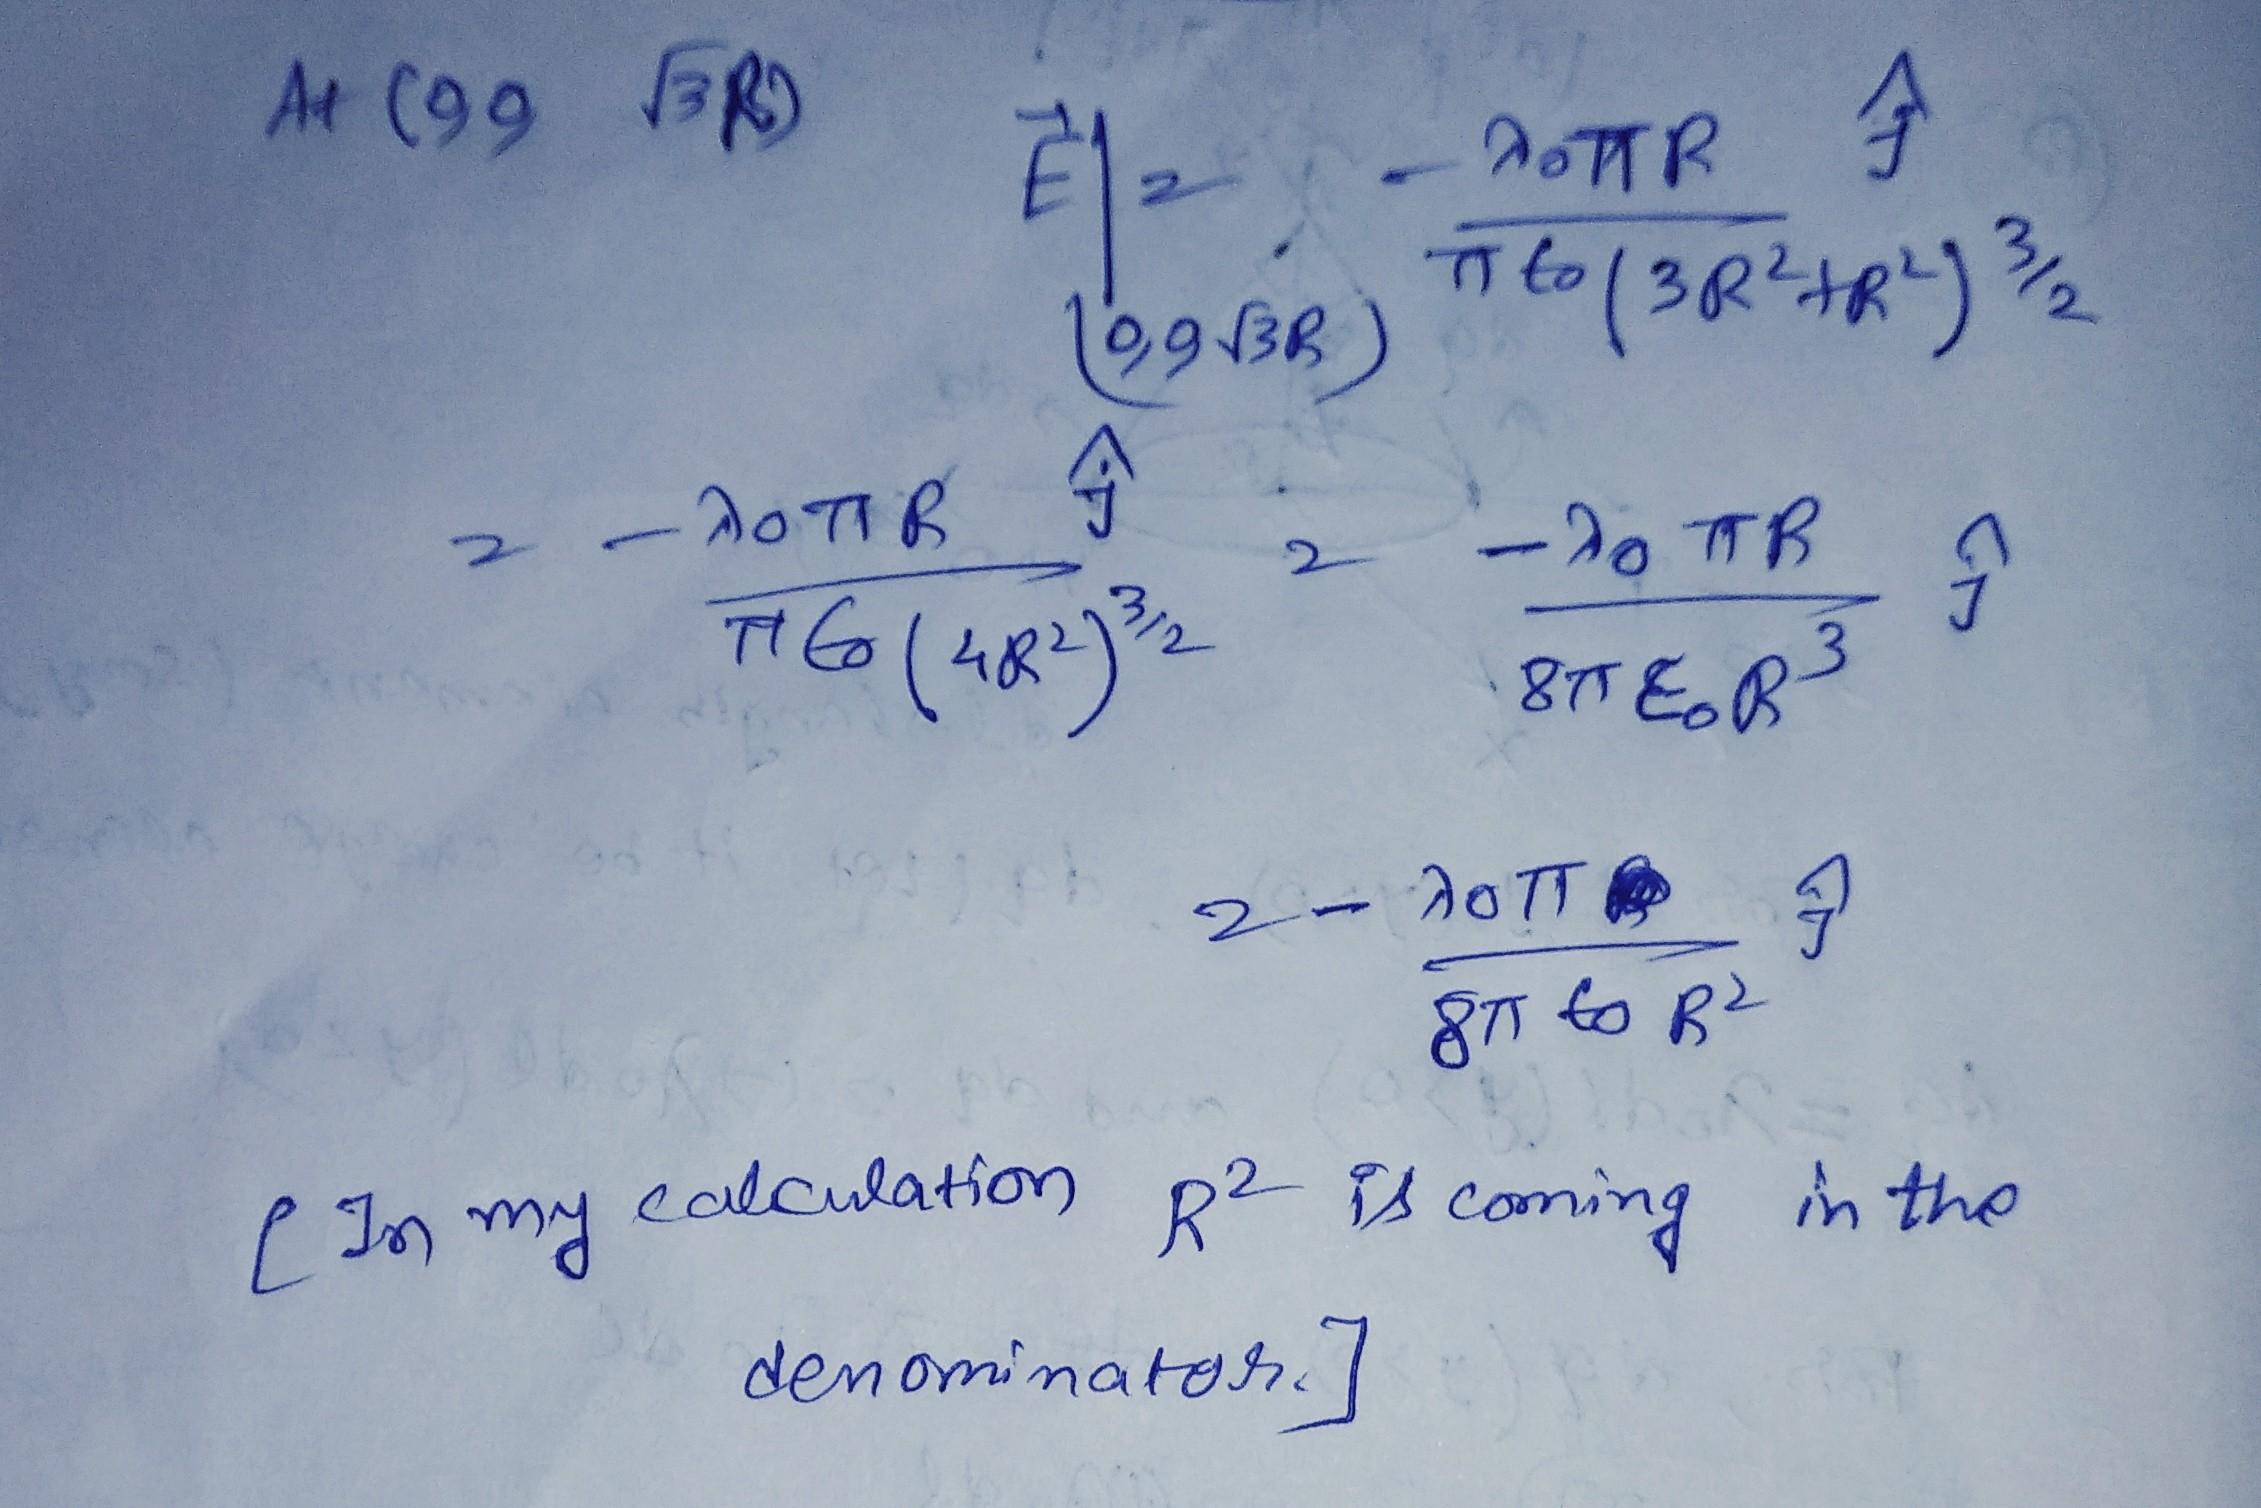 At (0,0 √3R) E⃗|(0,0 √3R) = - λ0πR / π ϵ0 (3R²+R²)^3/2 ĵ
= - λ0πR / π ϵ0 (4R²)^3/2 ĵ = - λ0 πR / 8π ε0 R³ ĵ
= - λ0π / 8π ϵ0 R² ĵ
[In my calculation R² is coming in the
denominator.]